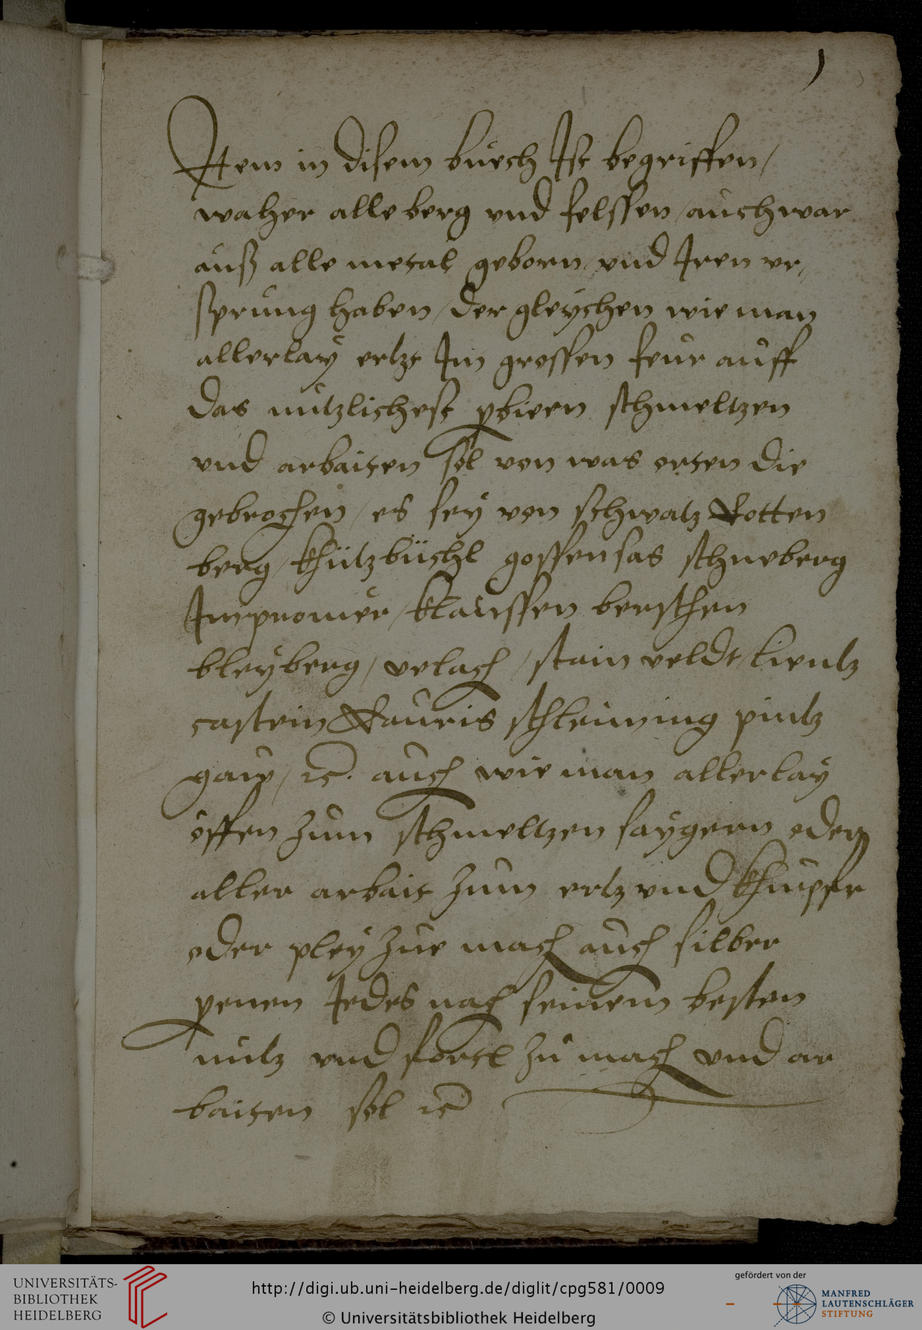 1
Item in disem buech Ist begriffen /
waher alle berg vnd felssen / auch war
auß alle metal geborn / vnd Iren vr,
sprung haben / der gleychen wie man
allerlay ertzt Im grossen feur auff
das nutzlichest probieren schmeltzen
vnd arbaiten sol von was orten die
gebrochen / es sey von schwatz Rotten
berg / khützbüchl gossensas schneberg
Imprомer / klaussen berschen
bleyberg / velach / stain veldt / Lientz
castein Rauris schleiming pintz
gau / etc. auch wie man allerlay
öffen zum schmeltzen saygern oder
aller arbait zum ertz vnd khupfer
oder pley zue mach auch silber
prenen Jedes nach seinem besten
nutz vnd fortl zu mach vnd ar
baiten sol etc
UNIVERSITÄTS-
BIBLIOTHEK
HEIDELBERG
http://digi.ub.uni-heidelberg.de/diglit/cpg581/0009
© Universitätsbibliothek Heidelberg
gefördert von der
MANFRED
LAUTENSCHLÄGER
STIFTUNG